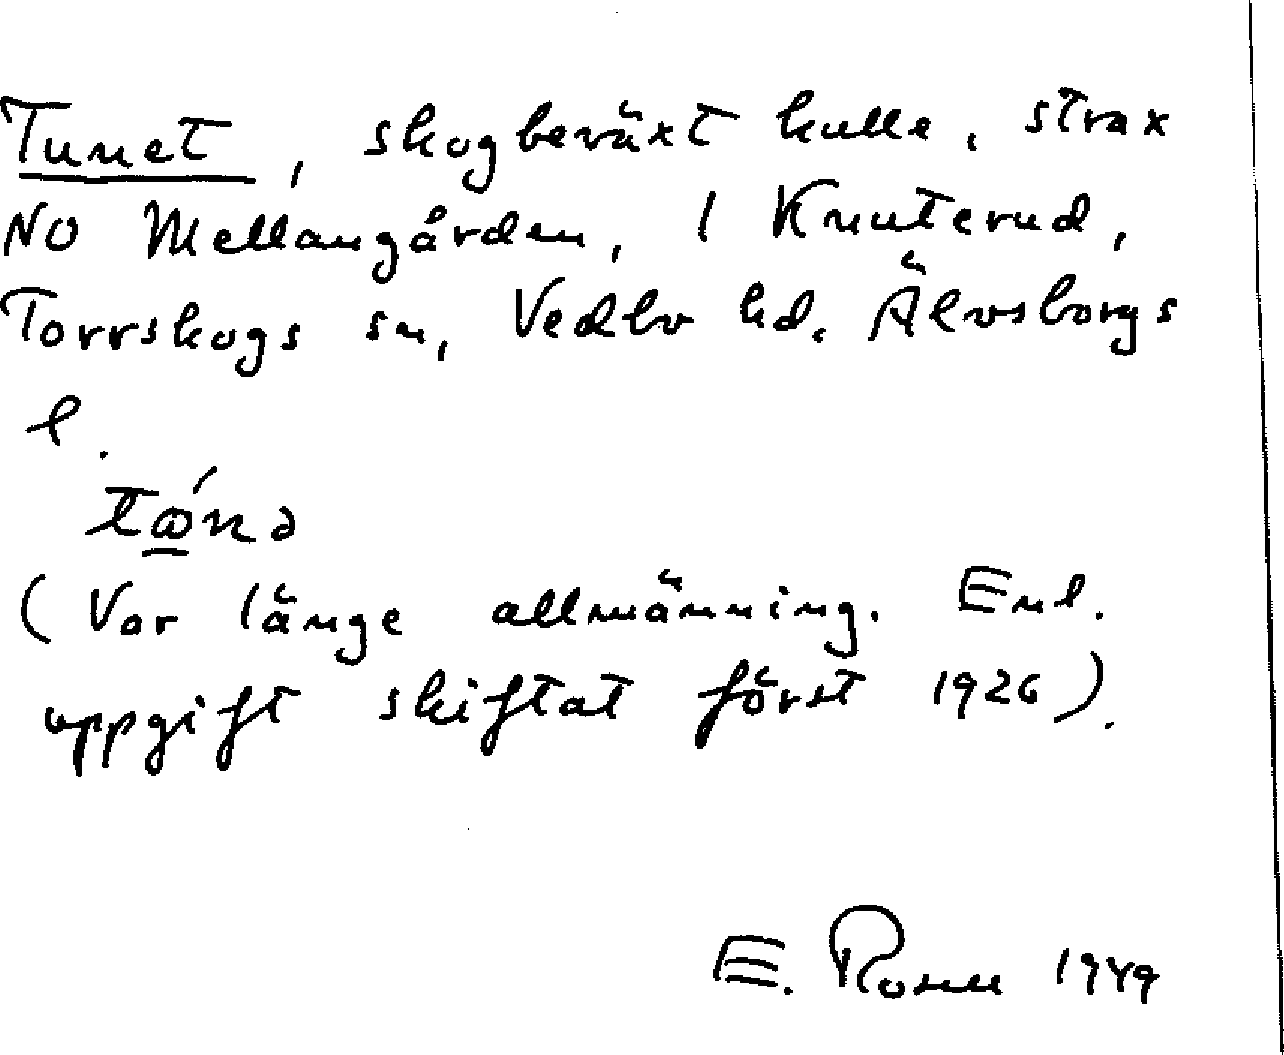 Tunet, skogbeväxt kulle, strax
NO Mellangården, 1 Knuterud,
Torrskogs sn, Vedbo hd. Älvsborgs
l.
tɷ́nə
(Var länge allmänning. Enl.
uppgift skiftat först 1926).
E. Rosén 1949